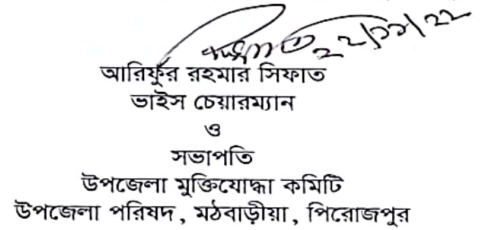 ২২/১১/২২
আরিফুর রহমার সিফাত
ভাইস চেয়ারম্যান
ও
সভাপতি
উপজেলা মুক্তিযোদ্ধা কমিটি
উপজেলা পরিষদ, মঠবাড়ীয়া, পিরোজপুর